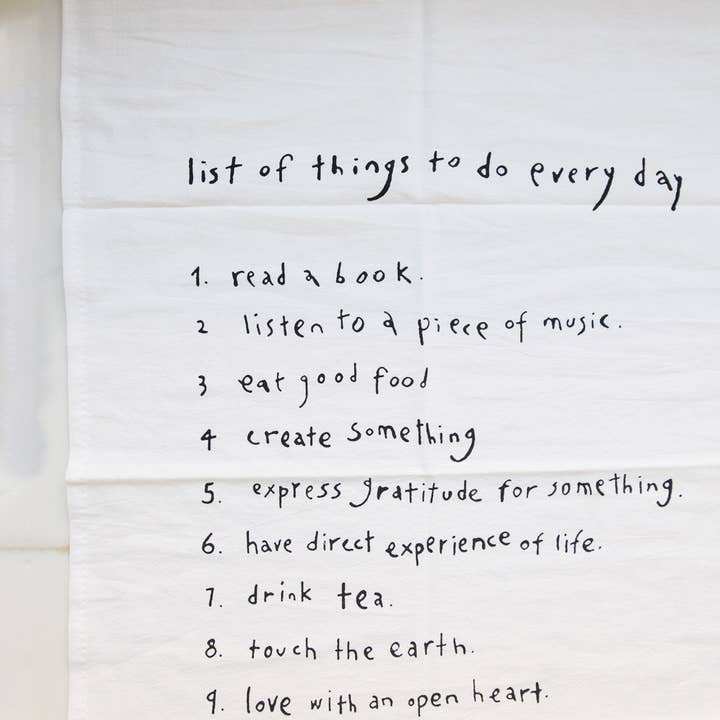 list of things to do every day
1. read a book.
2 listen to a piece of music.
3 eat good food
4 create something
5. express gratitude for something.
6. have direct experience of life.
7. drink tea.
8. touch the earth.
9. love with an open heart.